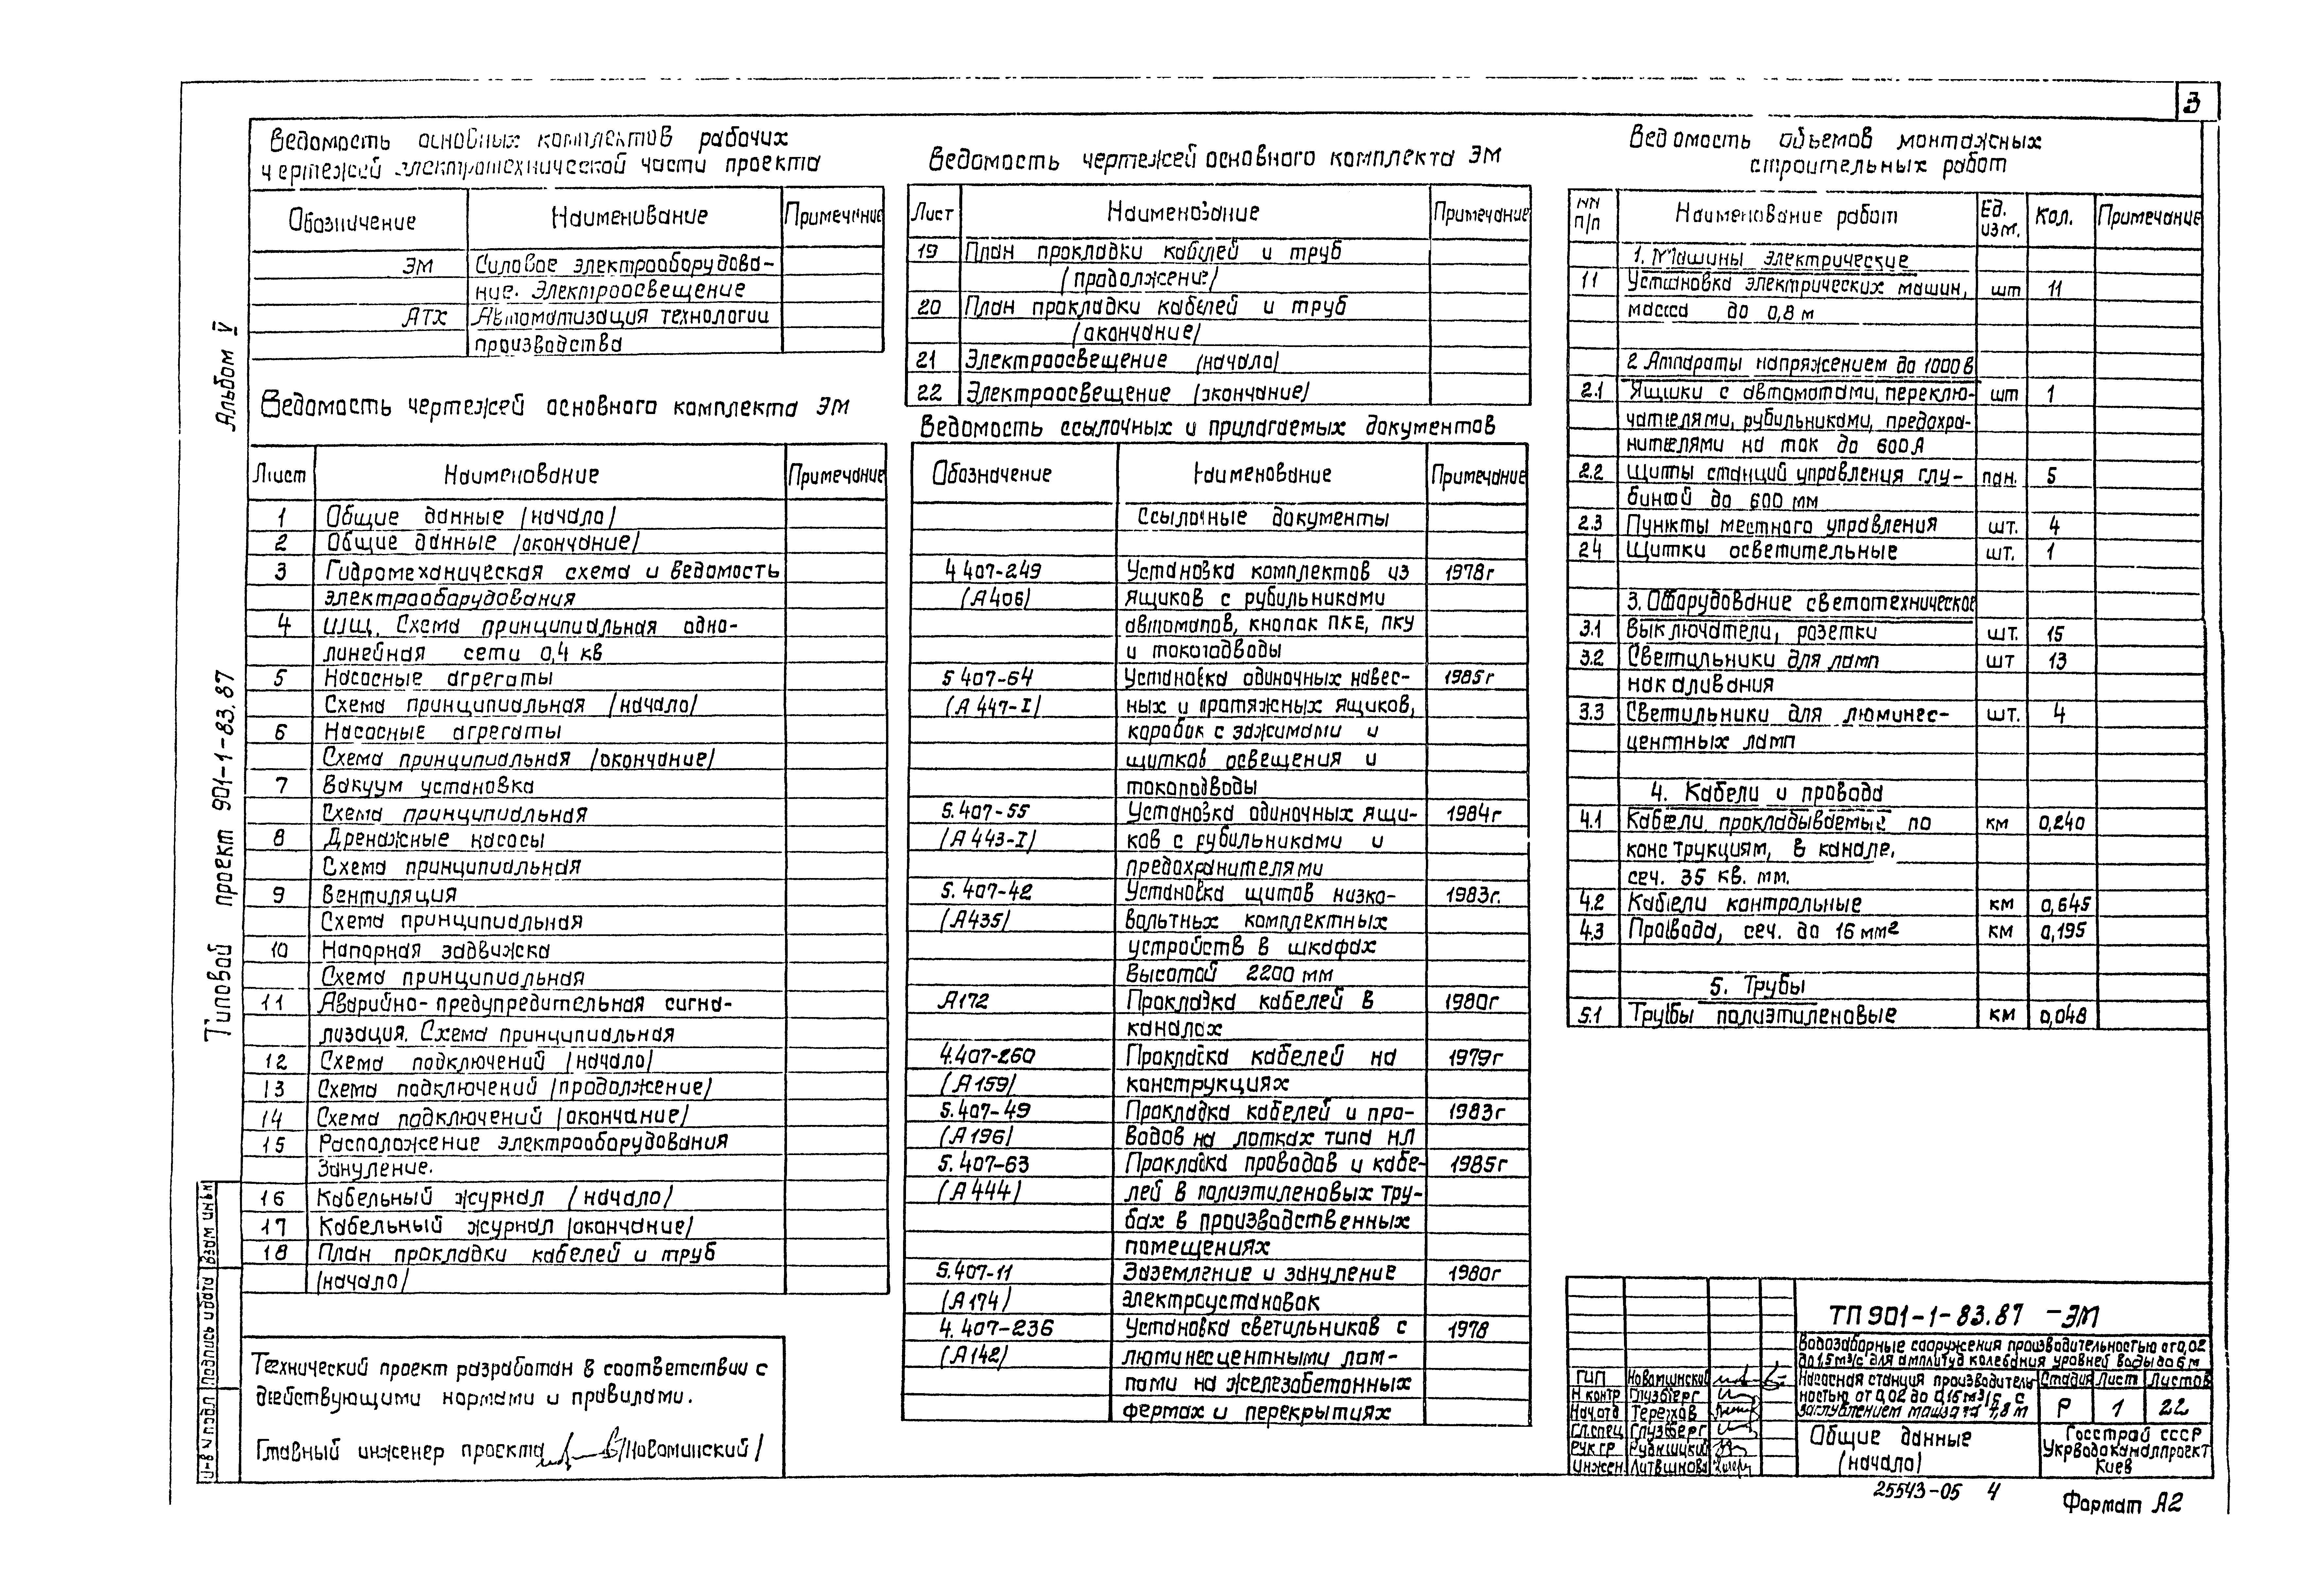 3
Ведомость основных комплектов рабочих
чертежей электротехнической части проекта
Обозначение Наименование Примечание
ЭМ Силовое электрооборудова-
ние. Электроосвещение
АТХ Автоматизация технологии
производства
Ведомость чертежей основного комплекта ЭМ
Лист Наименование Примечание
1 Общие данные /начало/
2 Общие данные /окончание/
3 Гидромеханическая схема и ведомость
электрооборудования
4 ШЩ. Схема принципиальная одно-
линейная сети 0,4 кв
5 Насосные агрегаты
Схема принципиальная /начало/
6 Насосные агрегаты
Схема принципиальная /окончание/
7 Вакуум установка
Схема принципиальная
8 Дренажные насосы
Схема принципиальная
9 Вентиляция
Схема принципиальная
10 Напорная задвижка
Схема принципиальная
11 Аварийно-предупредительная сигна-
лизация. Схема принципиальная
12 Схема подключений /начало/
13 Схема подключений /продолжение/
14 Схема подключений /окончание/
15 Расположение электрооборудования
Зануление.
16 Кабельный журнал /начало/
17 Кабельный журнал /окончание/
18 План прокладки кабелей и труб
/начало/
Технический проект разработан в соответствии с
действующими нормами и правилами.
Главный инженер проекта /Новоминский/
Ведомость чертежей основного комплекта ЭМ
Лист Наименование Примечание
19 План прокладки кабелей и труб
/продолжение/
20 План прокладки кабелей и труб
/окончание/
21 Электроосвещение /начало/
22 Электроосвещение /окончание/
Ведомость ссылочных и прилагаемых документов
Обозначение Наименование Примечание
Ссылочные документы
4 407-249 Установка комплектов из 1978г
(А406) ящиков с рубильниками
автоматов, кнопок ПКЕ, ПКУ
и токоподводы
5 407-64 Установка одиночных навес- 1985г
(А 447-I) ных и протяжных ящиков,
коробок с зажимами и
щитков освещения и
токоподводы
5.407-55 Установка одиночных ящи- 1984г
(А 443-I) ков с рубильниками и
предохранителями
5. 407-42 Установка щитов низко- 1983г.
(А435) вольтных комплектных
устройств в шкафах
высотой 2200 мм
А172 Прокладка кабелей в 1980г
каналах
4.407-260 Прокладка кабелей на 1979г
(А159) конструкциях
5.407-49 Прокладка кабелей и про- 1983г
(А196) водов на лотках типа НЛ
5.407-63 Прокладка проводов и кабе- 1985г
(А444) лей в полиэтиленовых тру-
бах в производственных
помещениях
5.407-11 Заземление и зануление 1980г
(А174) электроустановок
4. 407-236 Установка светильников с 1978
(А142) люминесцентными лам-
пами на железобетонных
фермах и перекрытиях
Ведомость объемов монтажных
строительных работ
NN п/п Наименование работ Ед. изм. Кол. Примечание
1. Машины электрические
11 Установка электрических машин, шт 11
масса до 0,8 м
2 Аппараты напряжением до 1000 В
2.1 Ящики с автоматами, переклю- шт 1
чателями, рубильниками, предохра-
нителями на ток до 600А
2.2 Щиты станций управления глу- пан. 5
биной до 600 мм
2.3 Пункты местного управления шт. 4
24 Щитки осветительные шт. 1
3. Оборудование светотехническое
3.1 Выключатели, розетки шт. 15
3.2 Светильники для ламп шт 13
накаливания
3.3 Светильники для люминес- шт. 4
центных ламп
4. Кабели и провода
4.1 Кабели, прокладываемые по км 0,240
конструкциям, в канале,
сеч. 35 кв. мм.
4.2 Кабели контрольные км 0,645
4.3 Провода, сеч. до 16 мм² км 0,195
5. Трубы
5.1 Трубы полиэтиленовые км 0,048
ТП 901-1-83.87 -ЭМ
Водозаборные сооружения производительностью от 0,02
до 1,5 м³/с для амплитуд колебания уровней воды до 6 м
ГИП Новоминский
Н контр Глузберг
Нач.отд Терехов
Гл.спец Глузберг
Рук гр Рудницкий
Инжен Литвинова
Насосная станция производитель
ностью от 0,02 до 0,15 м³/с с
заглублением машзала 7,8 м
Стадия Лист Листов
Р 1 22
Общие данные
(начало)
Госстрой СССР
Укрводоканалпроект
Киев
25543-05 4
Формат А2
Альбом V
Типовой проект 901-1-83.87
Взам инв N
Подпись и дата
Инв N подл